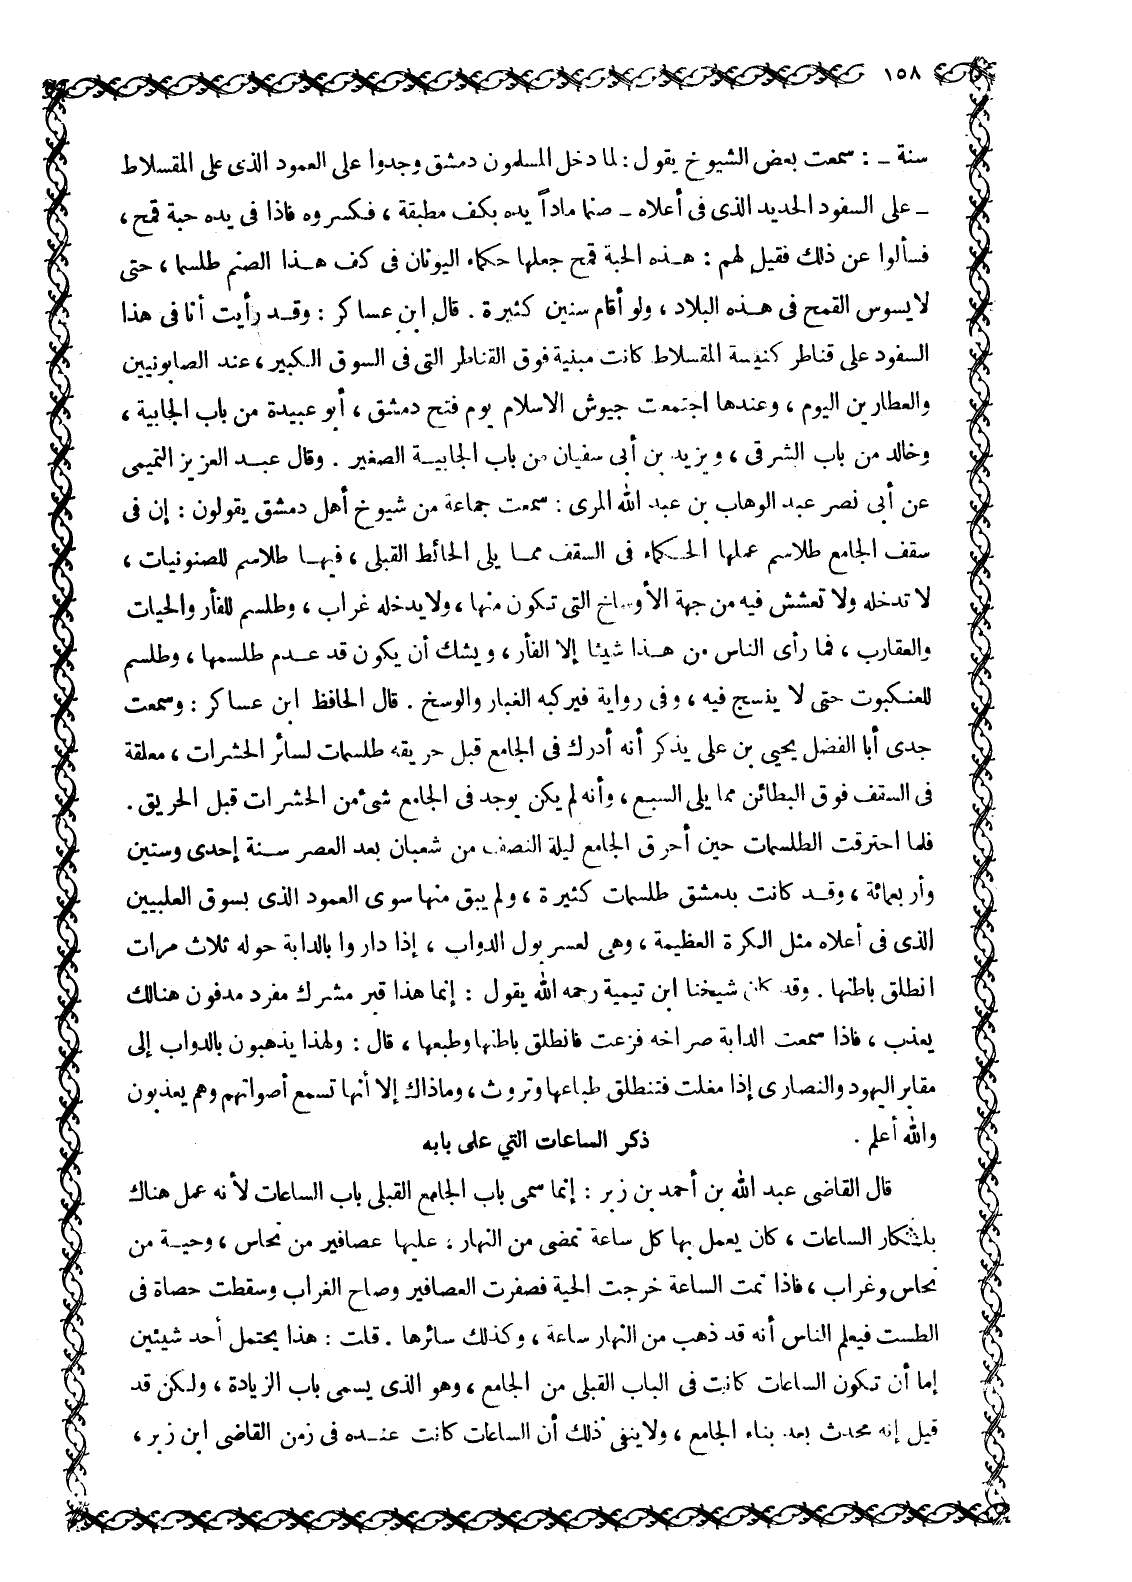 ١٥٨
سنة ـ : سمعت بعض الشيوخ يقول : لما دخل المسلمون دمشق وجدوا على العمود الذى على المقسلاط
ـ على السفود الحديد الذى فى أعلاه ـ صنما ماداً يده بكف مطبقة ، فكسروه فاذا فى يده حبة قمح ،
فسألوا عن ذلك فقيل لهم : هذه الحبة قمح جعلها حكماء اليونان فى كف هذا الصنم طلسما ، حتى
لا يسوس القمح فى هذه البلاد ، ولو أقام سنين كثيرة . قال ابن عساكر : وقد رأيت أنا فى هذا
السفود على قناطر كنيسة المقسلاط كانت مبنية فوق القناطر التى فى السوق الكبير ، عند الصابونيين
والعطارين اليوم ، وعندها اجتمعت جيوش الاسلام يوم فتح دمشق ، أبو عبيدة من باب الجابية ،
وخالد من باب الشرقى ، ويزيد بن أبى سفيان من باب الجابية الصغير . وقال عبد العزيز التميمى
عن أبى نصر عبد الوهاب بن عبد الله المرى : سمعت جماعة من شيوخ أهل دمشق يقولون : إن فى
سقف الجامع طلاسم عملها الحكماء فى السقف مما يلى الحائط القبلى ، فيها طلاسم للصنونيات ،
لا تدخله ولا تعشش فيه من جهة الأوساخ التى تكون منها ، ولا يدخله غراب ، وطلسم للفأر والحيات
والعقارب ، فما رأى الناس من هذا شيئا إلا الفأر ، ويشك أن يكون قد عدم طلسمها ، وطلسم
للعنكبوت حتى لا ينسج فيه ، وفى رواية فيركبه الغبار والوسخ . قال الحافظ ابن عساكر : وسمعت
جدى أبا الفضل يحيى بن على يذكر أنه أدرك فى الجامع قبل حريقه طلسمات لسائر الحشرات ، معلقة
فى السقف فوق البطائن مما يلى السبع ، وأنه لم يكن يوجد فى الجامع شئ من الحشرات قبل الحريق .
فلما احترقت الطلسمات حين أحرق الجامع ليلة النصف من شعبان بعد العصر سنة إحدى وستين
وأربعمائة ، وقد كانت بدمشق طلسمات كثيرة ، ولم يبق منها سوى العمود الذى بسوق العلبيين
الذى فى أعلاه مثل الكرة العظيمة ، وهى لعسر بول الدواب ، إذا داروا بالدابة حوله ثلاث مرات
انطلق باطنها . وقد كان شيخنا ابن تيمية رحمه الله يقول : إنما هذا قبر مشرك مفرد مدفون هنالك
يعذب ، فاذا سمعت الدابة صراخه فزعت فانطلق باطنها وطبعها ، قال : ولهذا يذهبون بالدواب إلى
مقابر اليهود والنصارى إذا مغلت فتنطلق طباعها وتروث ، وماذاك إلا أنها تسمع أصواتهم وهم يعذبون
والله أعلم .
ذكر الساعات التي على بابه
قال القاضى عبد الله بن أحمد بن زبر : إنما سمى باب الجامع القبلى باب الساعات لأنه عمل هناك
بلشكار الساعات ، كان يعمل بها كل ساعة تمضى من النهار ، عليها عصافير من نحاس ، وحية من
نحاس وغراب ، فاذا تمت الساعة خرجت الحية فصفرت العصافير وصاح الغراب وسقطت حصاة فى
الطست فيعلم الناس أنه قد ذهب من النهار ساعة ، وكذلك سائرها . قلت : هذا يحتمل أحد شيئين
إما أن تكون الساعات كانت فى الباب القبلى من الجامع ، وهو الذى يسمى باب الزيادة ، ولكن قد
قيل إنه محدث بعد بناء الجامع ، ولا ينفى ذلك أن الساعات كانت عنده فى زمن القاضى ابن زبر ،